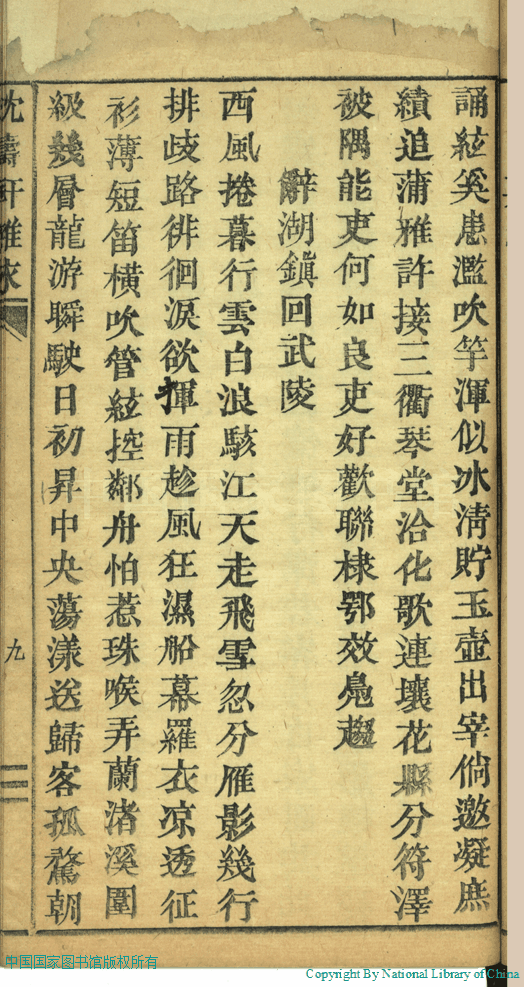 誦絃奚患濫吹竽渾似冰淸貯玉壺出宰倘邀凝庶
績追蒲雅許接三衢琴堂洽化歌連壤花縣分符澤
被隅能吏何如良吏好歡聯棣鄂效鳧趨
辭湖鎭回武陵
西風捲暮行雲白浪駭江天走飛雪忽分雁影幾行
排歧路徘徊淚欲揮雨趁風狂濕船幕羅衣凉透征
衫薄短笛橫吹管絃控鄰舟怕惹珠喉弄蘭渚溪圍
級幾層龍游瞬駛日初昇中央蕩漾送歸客孤鶩朝
九
中国国家图书馆版权所有
Copyright By National Library of China